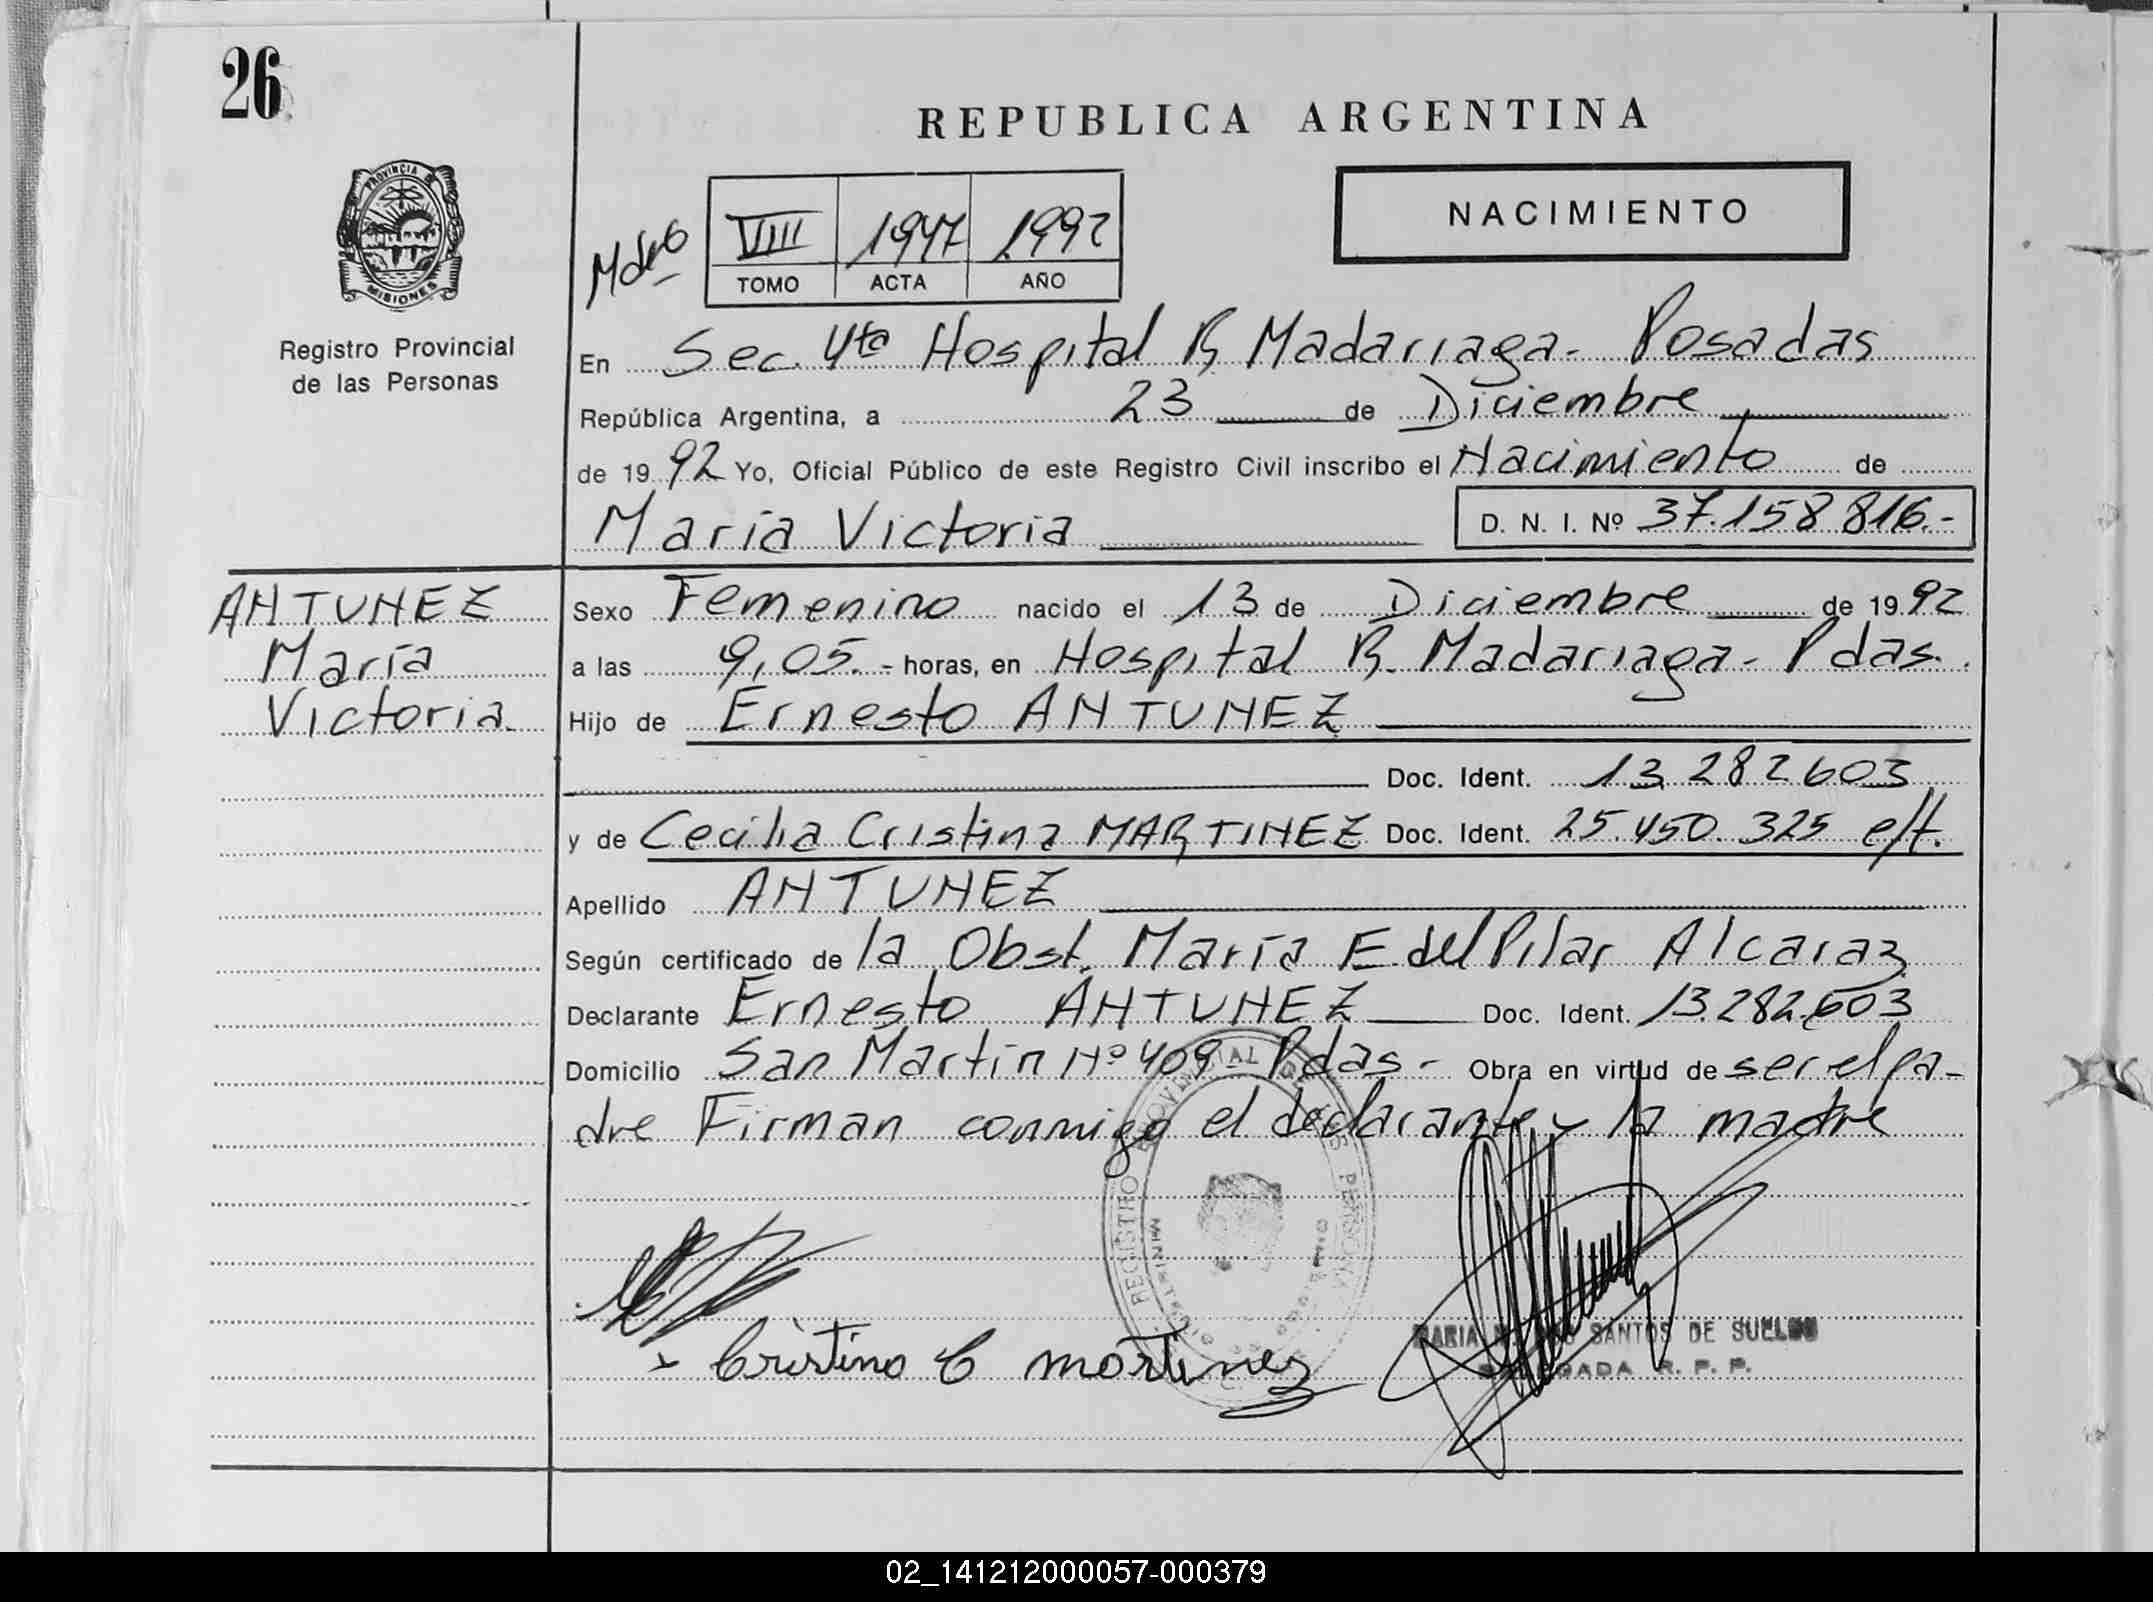 26
REPUBLICA ARGENTINA
NACIMIENTO
PROVINCIA D
MISIONES
VIII 1947 1992
TOMO ACTA AÑO
Registro Provincial
de las Personas
En Sec. 4ta Hospital R. Madariaga - Posadas
República Argentina, a 23 de Diciembre
de 1992 Yo, Oficial Público de este Registro Civil inscribo el Nacimiento de
María Victoria D. N. I. Nº 37.158 816.-
ANTUNEZ
María
Victoria.
Sexo Femenino nacido el 13 de Diciembre de 1992
a las 9,05.- horas, en Hospital R. Madariaga - Pdas.
Hijo de Ernesto ANTUNEZ
Doc. Ident. 13.282603
y de Cecilia Cristina MARTINEZ Doc. Ident. 25.450.325 e/t.
Apellido ANTUNEZ
Según certificado de la Obst. María E del Pilar Alcaraz
Declarante Ernesto ANTUNEZ Doc. Ident. 13.282.603
Domicilio San Martín Nº 409 Pdas - Obra en virtud de ser el pa-
dre Firman conmigo el declarante y la madre
REGISTRO PROVINCIAL DE LAS PERSONAS
x Cristina C martinez
MARIA SANTOS DE SUELDO
R. P. P.
02_141212000057-000379